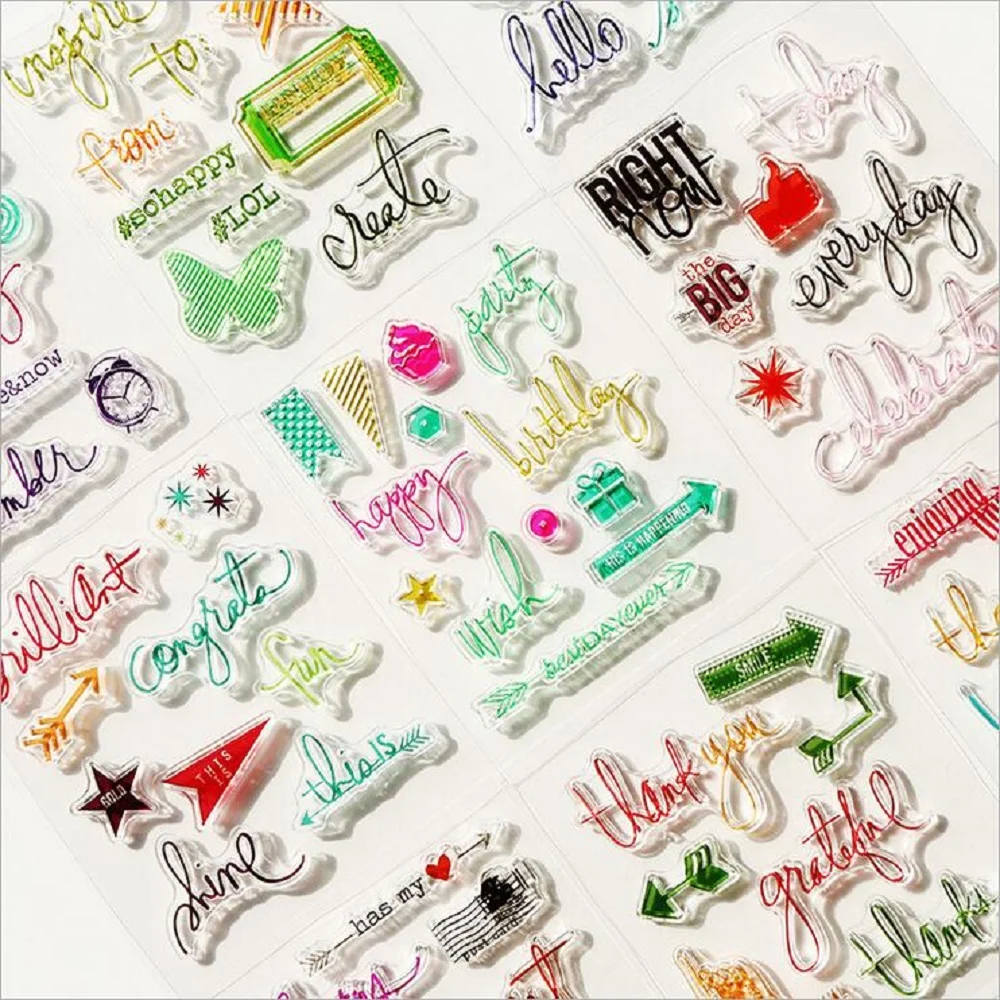 inspire
to
from
#sohappy
#LOL
create
hello
today
RIGHT
now
everyday
the
BIG
day
celebrate
e&now
mber
party
birthday
happy
THIS IS HAPPENING
wish
bestDAYever
enjoying
brilliant
congrats
fun
GOLD
THIS
this IS
shine
SMILE
thank you
grateful
thanks
has my
post card